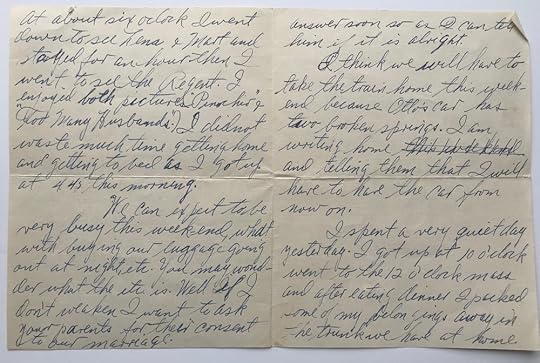 at about six oclock I went
down to see Lena & Mart and
stayed for an hour then I
went to see the Regent. I
enjoyed both pictures "Pinochio" &
"Too Many Husbands". I did not
waste much time getting home
and getting to bed as I got up
at 4:45 this morning.
We can expect to be
very busy this weekend, what
with buying our luggage going
out at night, etc. You may won-
der what the etc. is. Well if I
don't weaken I want to ask
your parents for their consent
to our marriage.
answer soon so as I can tell
him if it is alright.
I think we will have to
take the train home this week-
end because Otto's car has
two broken springs. I am
writing home
and telling them that I will
have to have the car from
now on.
I spent a very quiet day
yesterday. I got up at 10 o'clock
went to the 12 o'clock mass
and after eating dinner I packed
some of my belongings away in
the trunk we have at home